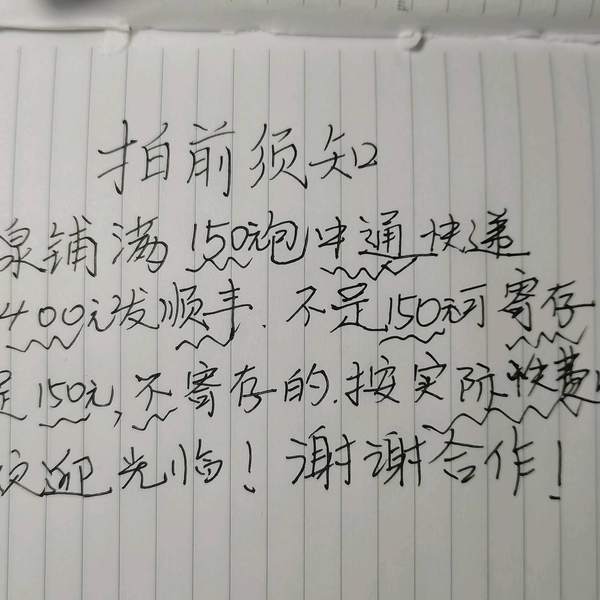 拍前须知
泉铺满150元包中通快递
400元发顺丰.不是150元可寄存
是150元,不寄存的.按实际快费
欢迎光临!谢谢合作!